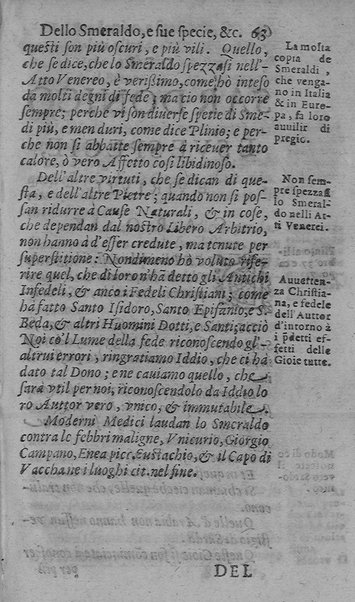 Dello Smeraldo, e sue specie, &c. 63
questi son più oscuri, e più vili. Quello,
che se dice, che lo Smeraldo spezzasi nell'
Atto Venereo, è verissimo, come hò inteso
da molti degni di fede; ma ciò non occorre
sempre; perche vi son diverse spetie di Sme-
di più, e men duri, come dice Plinio; e per-
che non si abbatte sempre à ricever tanto
calore, ò vero Affetto cosi libidinoso.
Dell'altre virtuti, che se dican di que-
sta, e dell'altre Pietre; quando non si pos-
san ridurre à Cause Naturali, & in cose,
che dependan dal nostro Libero Arbitrio,
non hanno à d'esser credute, ma tenute per
superstitione: Nondimeno hò voluto rife-
rire quel, che di loro n'hà detto gli Antichi
Infedeli, & anco i Fedeli Christiani; come
hà fatto Santo Isidoro, Santo Epifanio, e S.
Beda, & altri Huomini Dotti, e Santi; acciò
Noi co'l Lume della fede riconoscendo gl'
altrui errori, ringratiamo Iddio, che ci hà
dato tal Dono; e ne cauiamo quello, che
sarà vtil per noi, riconoscendolo da Iddio lo
ro Auttor vero, vnico, & immutabile.
Moderni Medici laudan lo Smeraldo
contra le febbri maligne, Vnicurio, Giorgio
Campano, Enea picc. Eustachio, & il Capo di
Vacchane i luoghi cit. nel fine.
DEL
La molta
copia de
Smeraldi,
che venga-
no in Italia
& in Euro-
pa, fa loro
auuilir di
pregio.
Non sem-
pre spezzasi
lo Smeral-
do nelli At-
ti Venerei.
Auuerten-
za Christia-
na, e fedele
dell'Autor
d'intorno à
i predetti ef-
fetti delle
Gioie tutte.